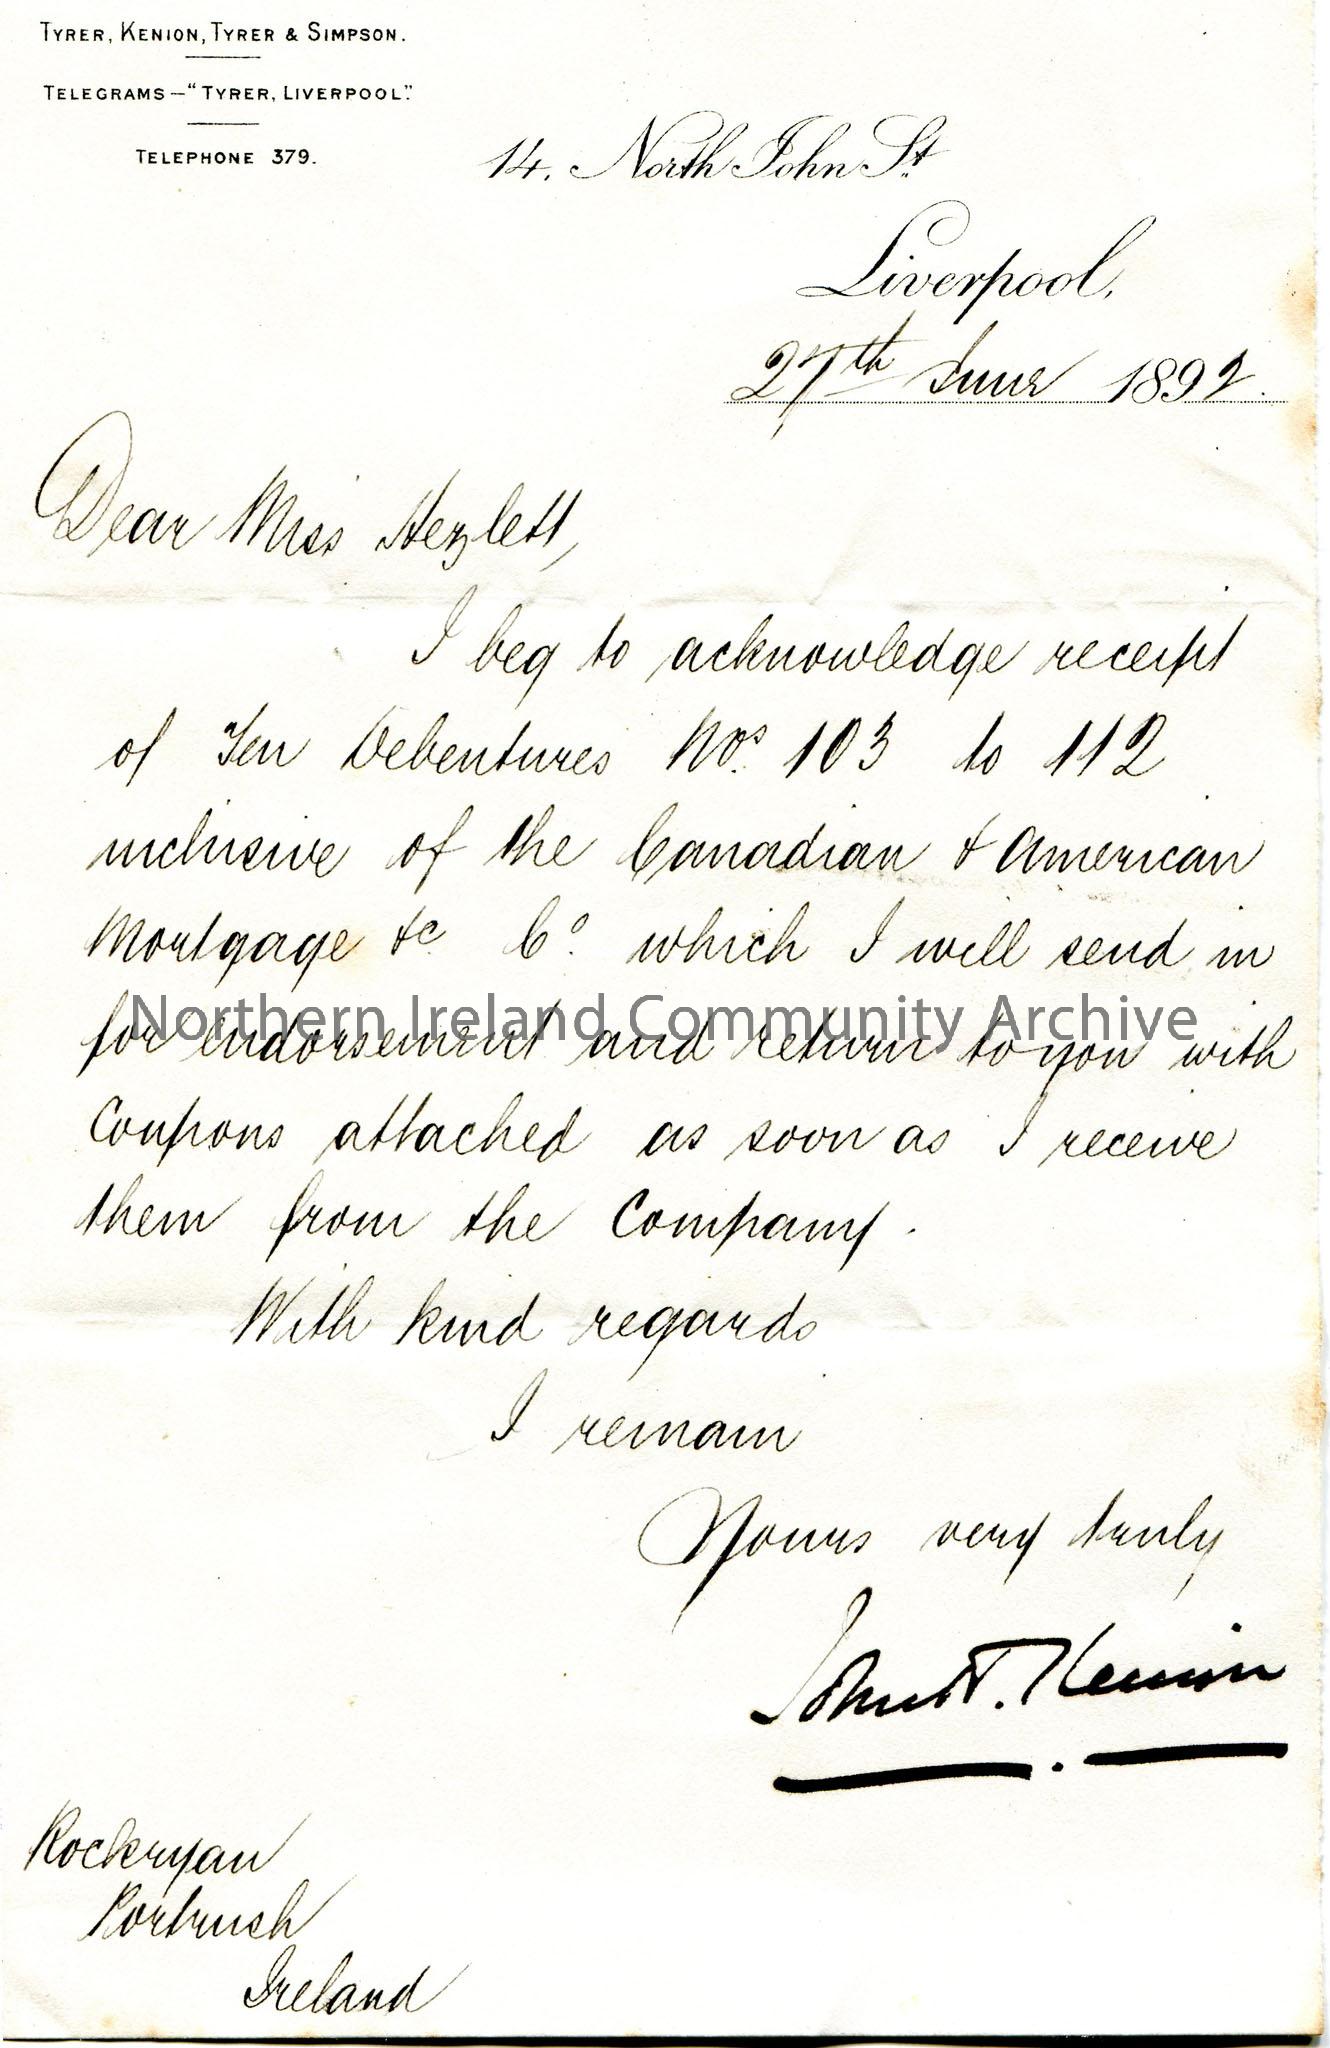 TYRER, KENION, TYRER & SIMPSON.
TELEGRAMS—"TYRER, LIVERPOOL."
TELEPHONE 379.
14, North John St.
Liverpool,
27th June 1892.
Dear Miss Hezlett,
I beg to acknowledge receipt
of Ten Debentures Nos. 103 to 112
inclusive of the Canadian & American
Mortgage &c Co. which I will send in
for endorsement and return to you with
Coupons attached as soon as I receive
them from the Company.
With kind regards
I remain
Yours very truly
John T. Kenion
Rockryan
Portrush
Ireland
Northern Ireland Community Archive